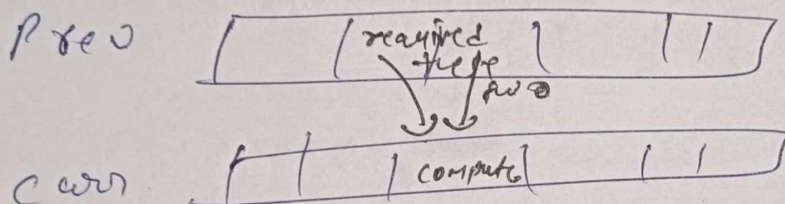 Prev
required
these
two
Curr
compute